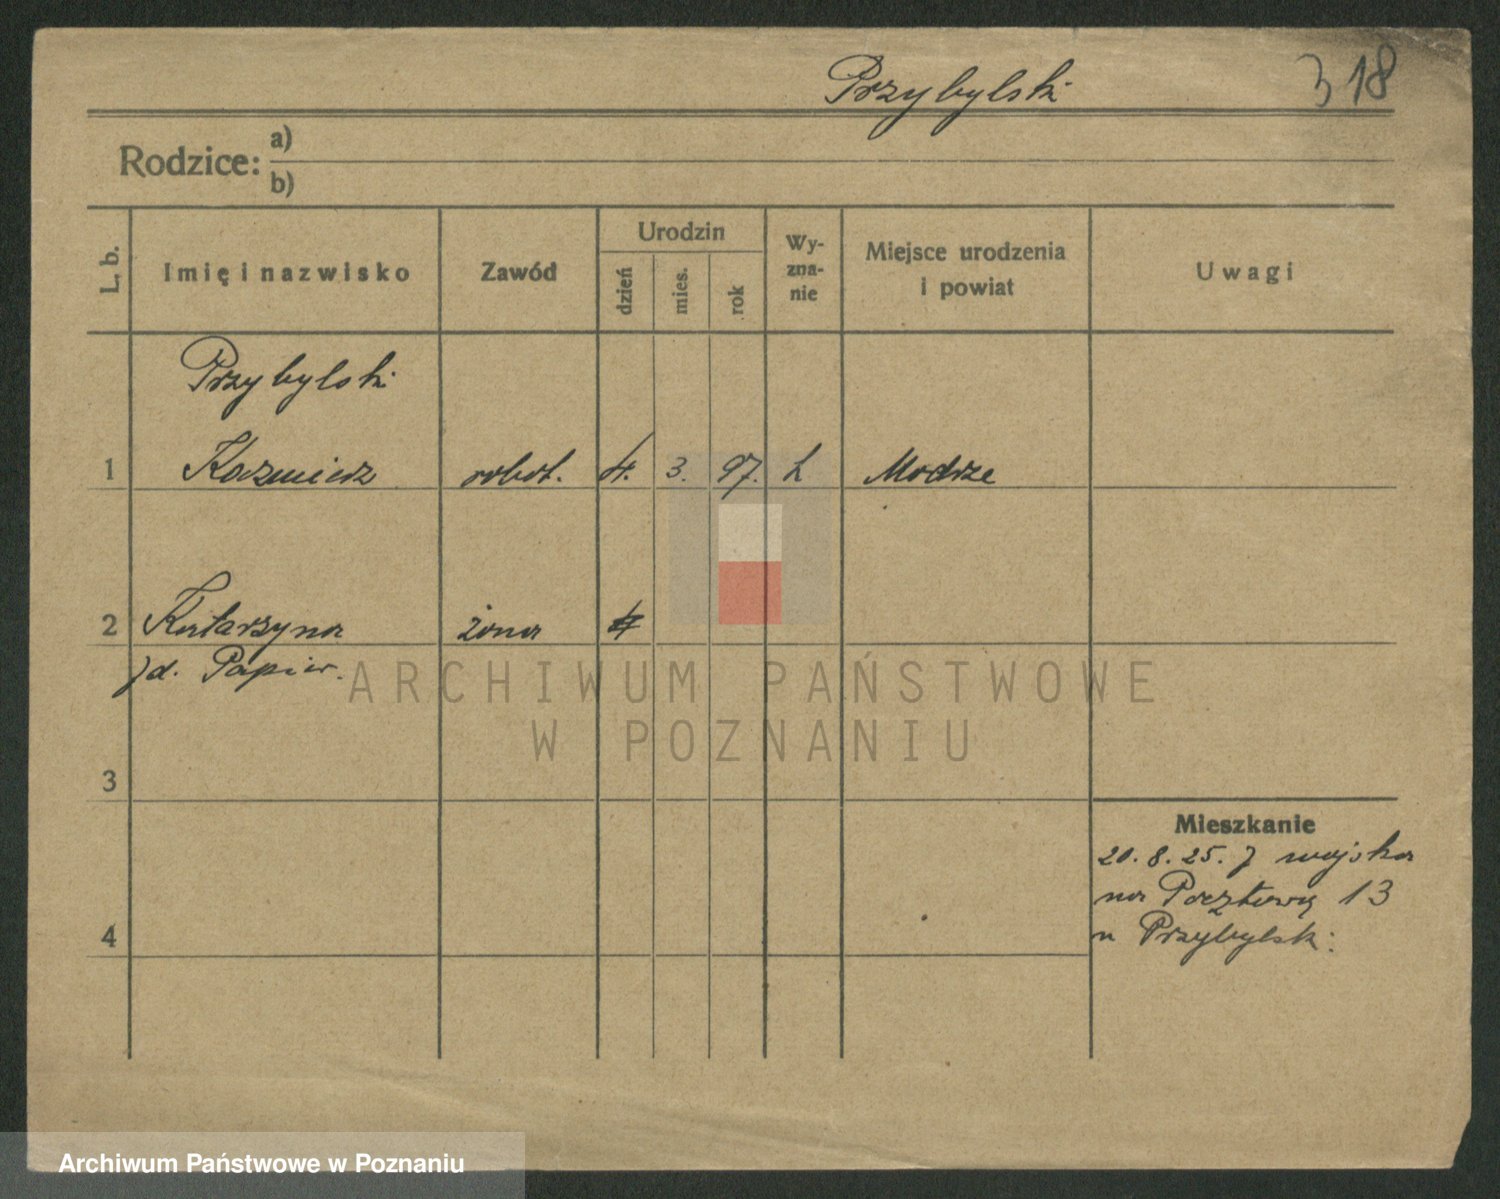 Przybylski 318
Rodzice: a)
b)
L. b. Imię i nazwisko Zawód Urodzin dzień mies. rok Wy-zna-nie Miejsce urodzenia i powiat Uwagi
Przybylski
1 Kazmierz robot. 4. 3. 97. k Modrze
2 Katarzyna żona
d. Papier.
3
4
Mieszkanie
20. 8. 25. z wojska
na Pocztową 13
u Przybylsk:
ARCHIWUM PAŃSTWOWE
W POZNANIU
Archiwum Państwowe w Poznaniu